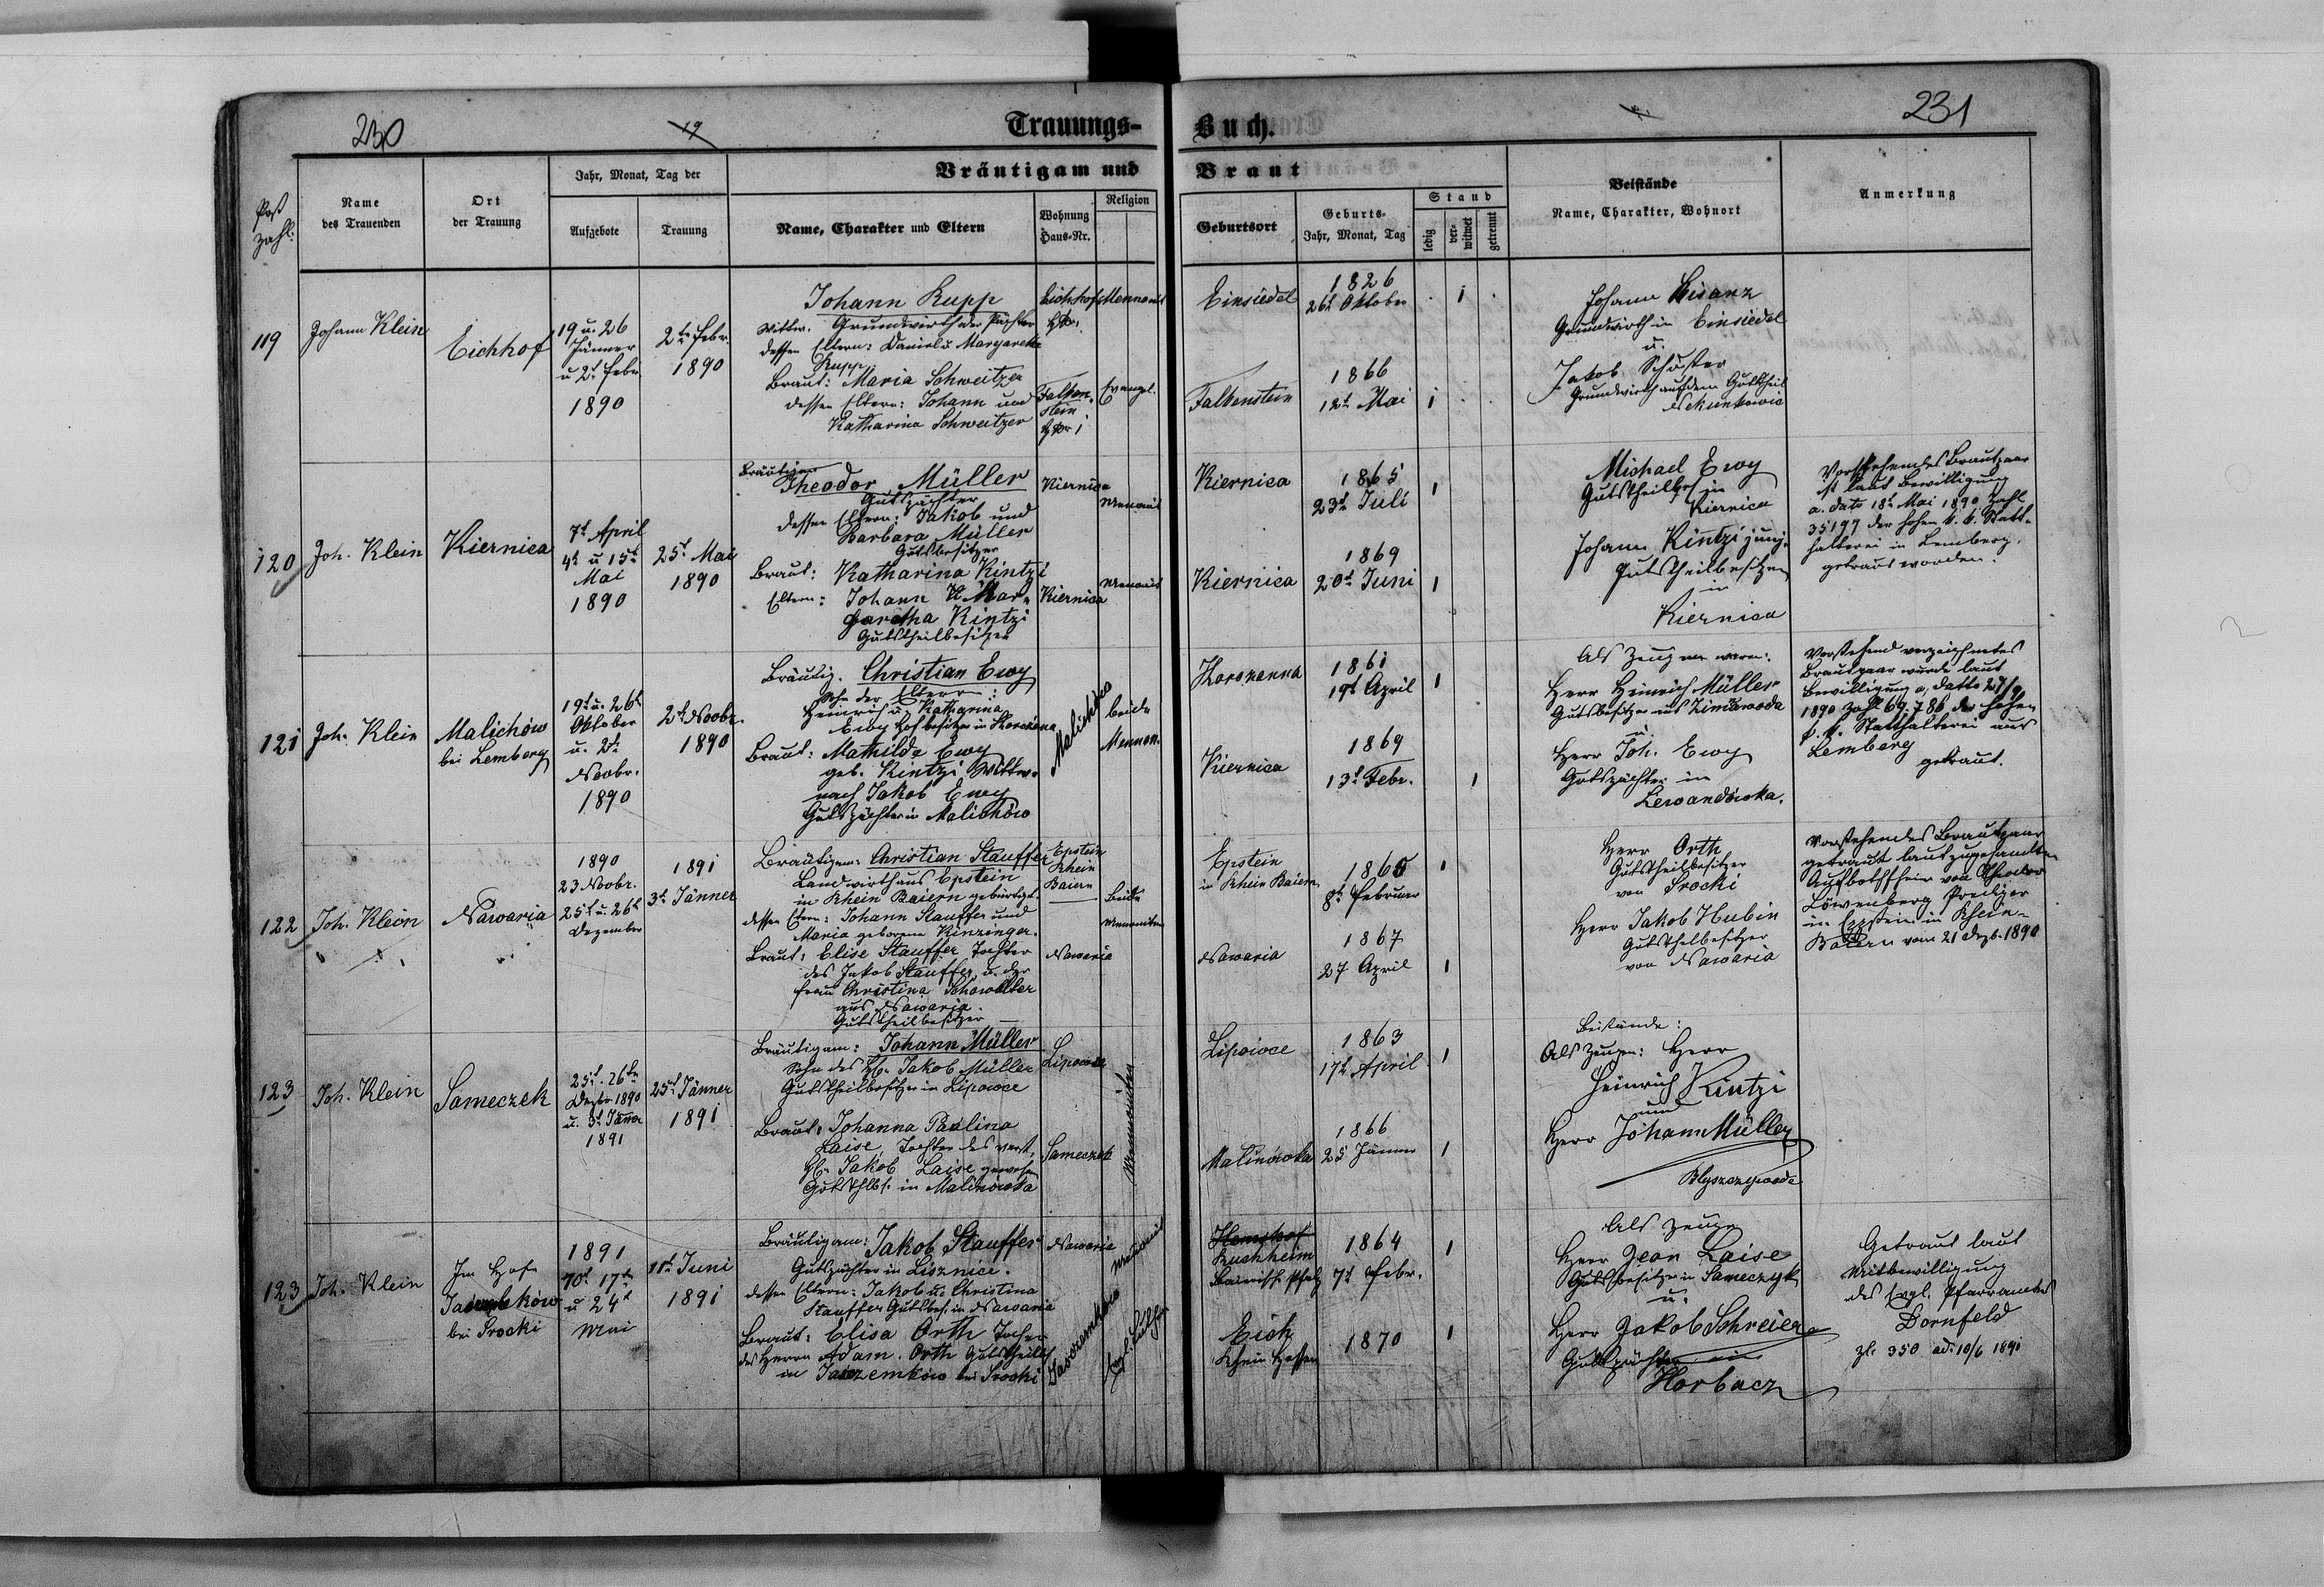 230
19
Trauungs-
Buch.
231
Bräutigam und
Braut
Post
Zahl.
Name
des Trauenden
Ort
der Trauung
Jahr, Monat, Tag der
Aufgebote
Trauung
Name, Charakter und Eltern
Wohnung
Haus-Nr.
Religion
Geburtsort
Geburts-
Jahr, Monat, Tag
Stand
ledig
ver-
witwet
getrennt
Beistände
Name, Charakter, Wohnort
Anmerkung
119
Johann Klein
Eichhof
19 u. 26
Jänner
u 2t. Febr.
1890
2te Febr.
1890
Johann Rupp
Wittw. Grundwirth der Pächter
dessen Eltern: Daniel u Margaretha
Rupp
Braut: Maria Schweitzer
dessen Eltern: Johann und
Katharina Schweitzer
Eichhof
Falken-
stein
Mennonit
Evangel.
Einsiedel
1826
26t Oktober
Falkenstein
1866
12t Mai
Johann Lisanz
Grundwirth in Einsiedel
u.
Jakob Schuster
Grundwirth auf dem Guttheil
120
Joh. Klein
Kiernica
7t April
4t u 15t
Mai
1890
25t Mai
1890
Bräutigam
Theodor Müller
Gutspächter
dessen Eltern: Jakob und
Barbara Müller
Gutsbesitzer
Braut: Katharina Kintzi
Eltern: Johann u. Mar-
garetha Kintzi
Gutstheilbesitzer
Kiernica
Menonit
Kiernica
Menonit
Kiernica
1865
23t Juli
Kiernica
1869
20t Juni
Michael Ewy
Gutstheilbes in
Kiernica
Johann Kintzi junj.
Gutstheilbesitzer
in
Kiernica
Vorstehendes Brautpaar
ist laut Bewilligung
a. dato 18t Mai 1890 Zahl
35197 der hohen k. k. Statt-
halterei in Lemberg.
getraut worden.
121
Joh. Klein
Malichów
bei Lemberg
19t u. 26t
Oktober
u. 2t
Novbr.
1890
2t Novbr.
1890
Bräutig. Christian Ewy
Sohn der Eltern:
Heinrich u. Katharina
Ewy Hofbesitzer in Korosnna
Braut: Mathilda Ewy
geb. Kintzi Wittwe
nach Jakob Ewy
Gutspächter in Malichów
Malichów
beide
Mennon.
Korosnna
1861
19t April
Kiernica
1869
13t Febr.
Als Zeugen waren:
Herr Heinrich Müller
Gutsbesitzer aus Zimawoda
u.
Herr Joh. Ewy
Gutspächter in
Lewandówka.
Vorstehend verzeichnetes
Brautpaar wurde laut
Bewilligung a. datto 27/9
1890 Zahl 69.786 der hohen
k. k. Statthalterei aus
Lemberg
getraut.
122
Joh. Klein
Nawaria
1890
23 Novbr.
25t u. 26t
Dezember
1891
3t Jänner
Bräutigam: Christian Stauffer
Landwirth aus Epstein
in Rhein Baiern gebürtigt.
dessen Eltern: Johann Stauffer und
Maria geborene Kinzinger.
Braut: Elise Stauffer Tochter
des Jakob Stauffer u. der
Frau Christina Schowalter
aus Nawaria.
Gutstheilbesitzer
Epstein
Rhein
Baiern
Nawaria
Beide
Mennoniten
Epstein
in Rhein Baiern
1865
8t Februar
Nawaria
1867
27 April
Herr Orth
Gutstheilbesitzer
von Srocki
Herr Jakob Hubin
Gutstheilbesitzer
von Nawaria
Vorstehendes Brautpaar
getraut laut zugesandten
Aufbothschein von Theodor
Löwenberg Prediger
in Eppstein in Rhein-
Baiern vom 21 Dezb. 1890
123
Joh. Klein
Sameczek
25t. 26te
Dezbr 1890
u. 3t Jänner
1891
25t Jänner
1891
Bräutigam: Johann Müller
Sohn des H. Jakob Müller
Gutstheilbesitzer in Lipowce
Braut: Johanna Paulina
Laise, Tochter des verst.
H. Jakob Laise gewesen
Gutsthlbs. in Malinówka
Lipowce
Sameczek
Mennoniten
Lipowce
1863
17t April
Malinówka
1866
25 Jänner
Beistände:
Als Zeugen: Herr
Heinrich Kintzi
und
Herr Johann Müller
123
Joh. Klein
Im Hofe
bei Srocki
1891
17te
u 24t
Mai
11te Juni
1891
Bräutigam: Jakob Stauffer
Gutspächter in Lisznice.
dessen Eltern: Jakob u. Christina
Stauffer Gutsbes. in Nawaria
Braut: Elisa Orth Tochter
des Herrn Adam Orth Gutstheilbs
in Jaszemków bei Srocki
Nawaria
Menonit
Ruchheim
Bairisch Pfalz
1864
7t Febr.
Eich
Rhein Hessen
1870
Als Zeugen
Herr Jean Laise
Gutsbesitzer in Sameczyk
u.
Herr Jakob Schreier
Gutspächter in
Horbacz
Getraut laut
Mitbewilligung
des Evgl. Pfarramtes
Dornfeld
Zl. 350 ad. 10/6 1891